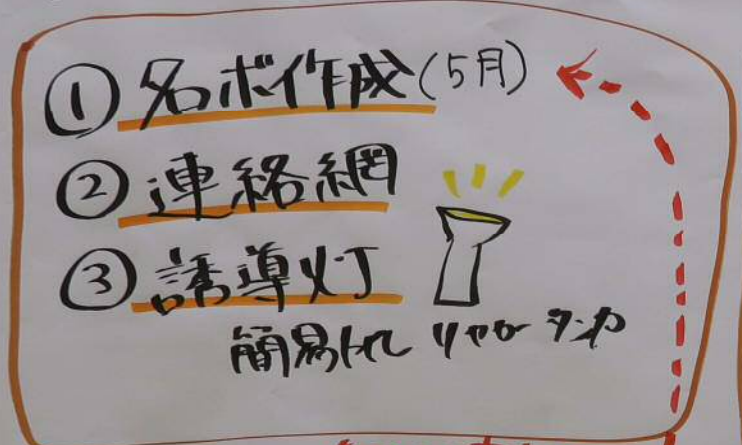 ① 名ボ作成(5月)
② 連絡網
③ 誘導灯
簡易トイレ リヤカー タンカ